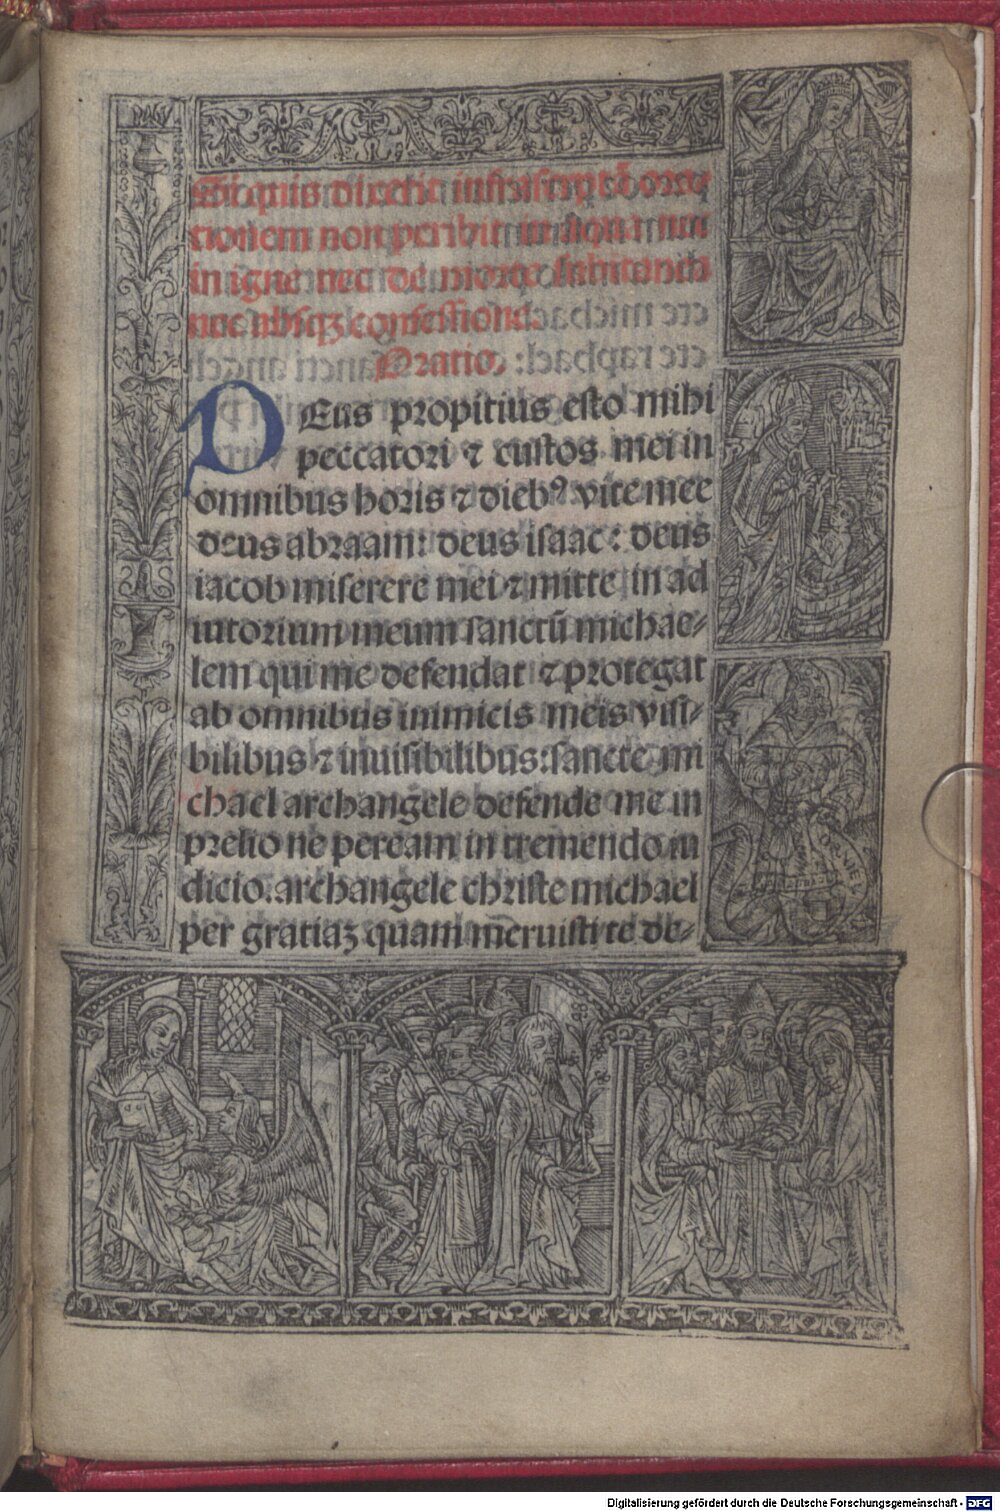 Si quis dixerit infrascriptā ora⸗
tionem non peribit in aqua nec
in igne nec de morte subitanea
nec absqꝫ confessione.
Oratio.
DEus propitius esto mihi
peccatori ⁊ custos mei in
omnibus horis ⁊ diebꝰ vite mee
deus abraam: deus isaac: deus
iacob miserere mei ⁊ mitte in ad
iutorium meum sanctū michae⸗
lem qui me defendat ⁊ protegat
ab omnibus inimicis meis visi⸗
bilibus ⁊ inuisibilibus: sancte mi
chael archangele defende me in
prelio ne peream in tremendo iu
dicio. archangele christe michael
per gratiaꝫ quam meruisti te de⸗
Digitalisierung gefördert durch die Deutsche Forschungsgemeinschaft - DFG